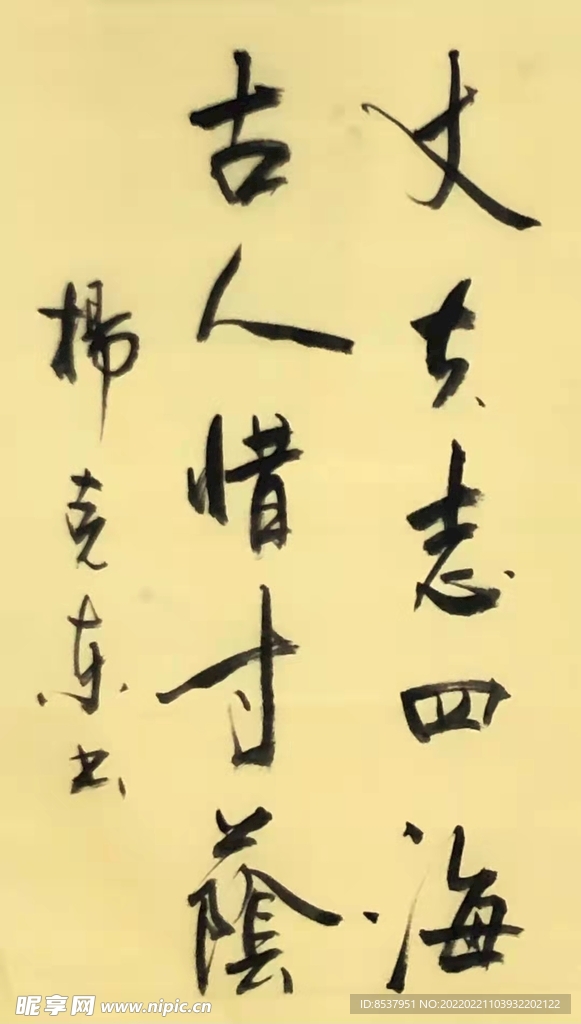 丈夫志四海
古人惜寸蔭
楊克东书
昵享网 www.nipic.cn
ID:8537951 NO:20220221103932202122